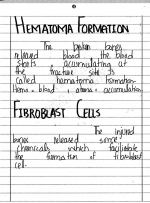 HEMATOMA FORMATION
The broken bones
released blood the blood
starts accumulating at
the fracture site is
called hematoma formation.
Hema = blood , atoma = accumulation.
FIBROBLAST CELLS
The injured
bones released some
chemicals which facilitate
the formation of fibroblast
cell.